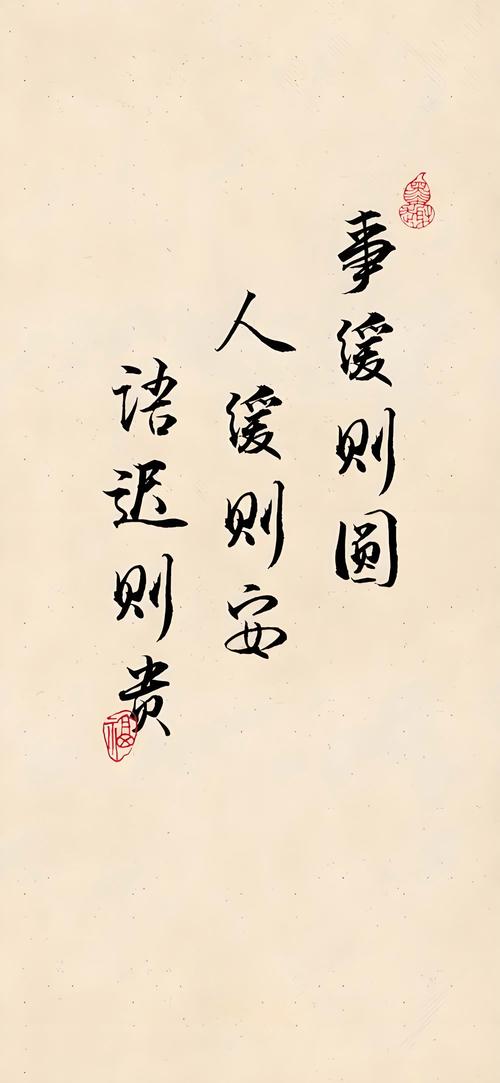 事缓则圆
人缓则安
语迟则贵
福